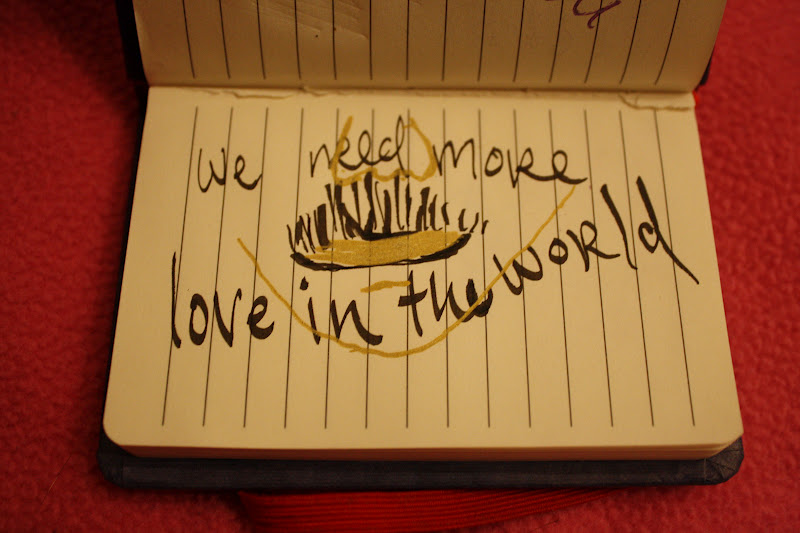 we need more
love in the world